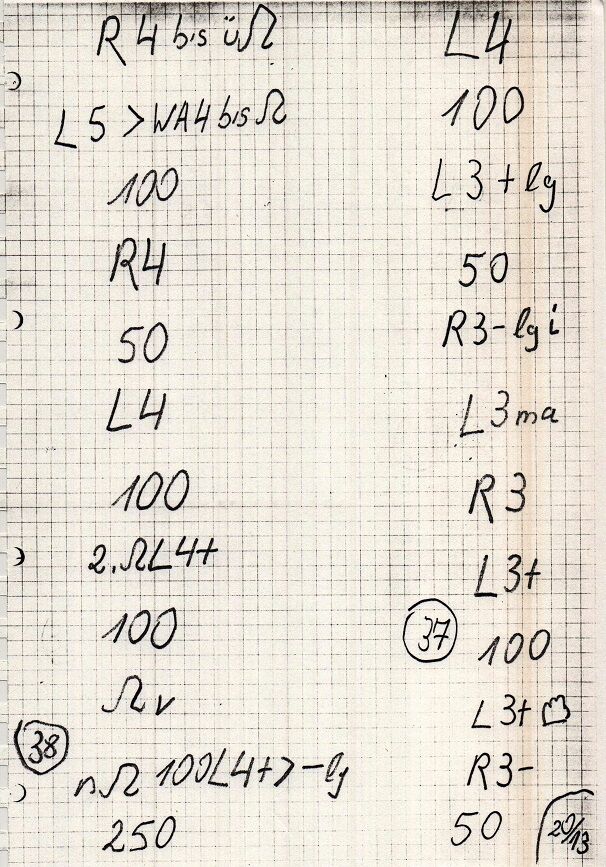 R4 bis üΩ
L5 > WA4 bis Ω
100
R4
50
L4
100
2. Ω L4+
100
Ω v
38
nΩ 100 L4+ > - lg
250
L4
100
L3 + lg
50
R3 - lg i
L3 ma
R3
L3+
37
100
L3+
R3-
50
20/13